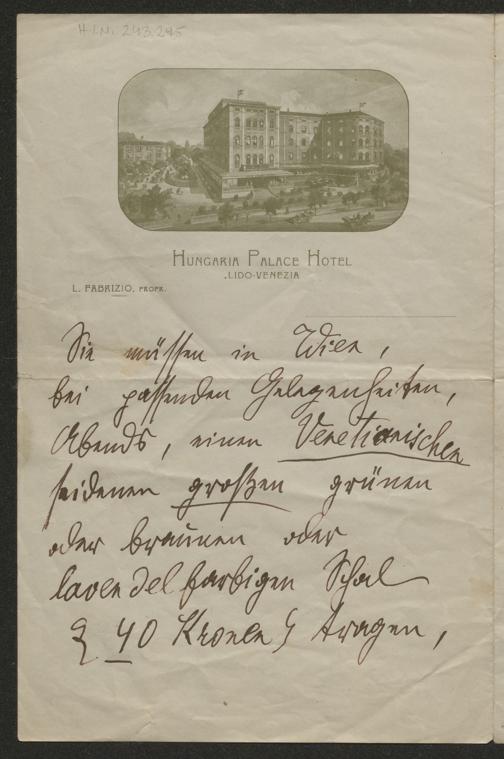 H.I.N. 243.245
HUNGARIA PALACE HOTEL
LIDO-VENEZIA
L. FABRIZIO, PROPR.
Sie müssen in Wien,
bei passenden Gelegenheiten,
Abends, einen Venetianischen
seidenen großen grünen
oder braunen oder
lavendelfarbigen Schal
( 40 Kronen ) tragen,